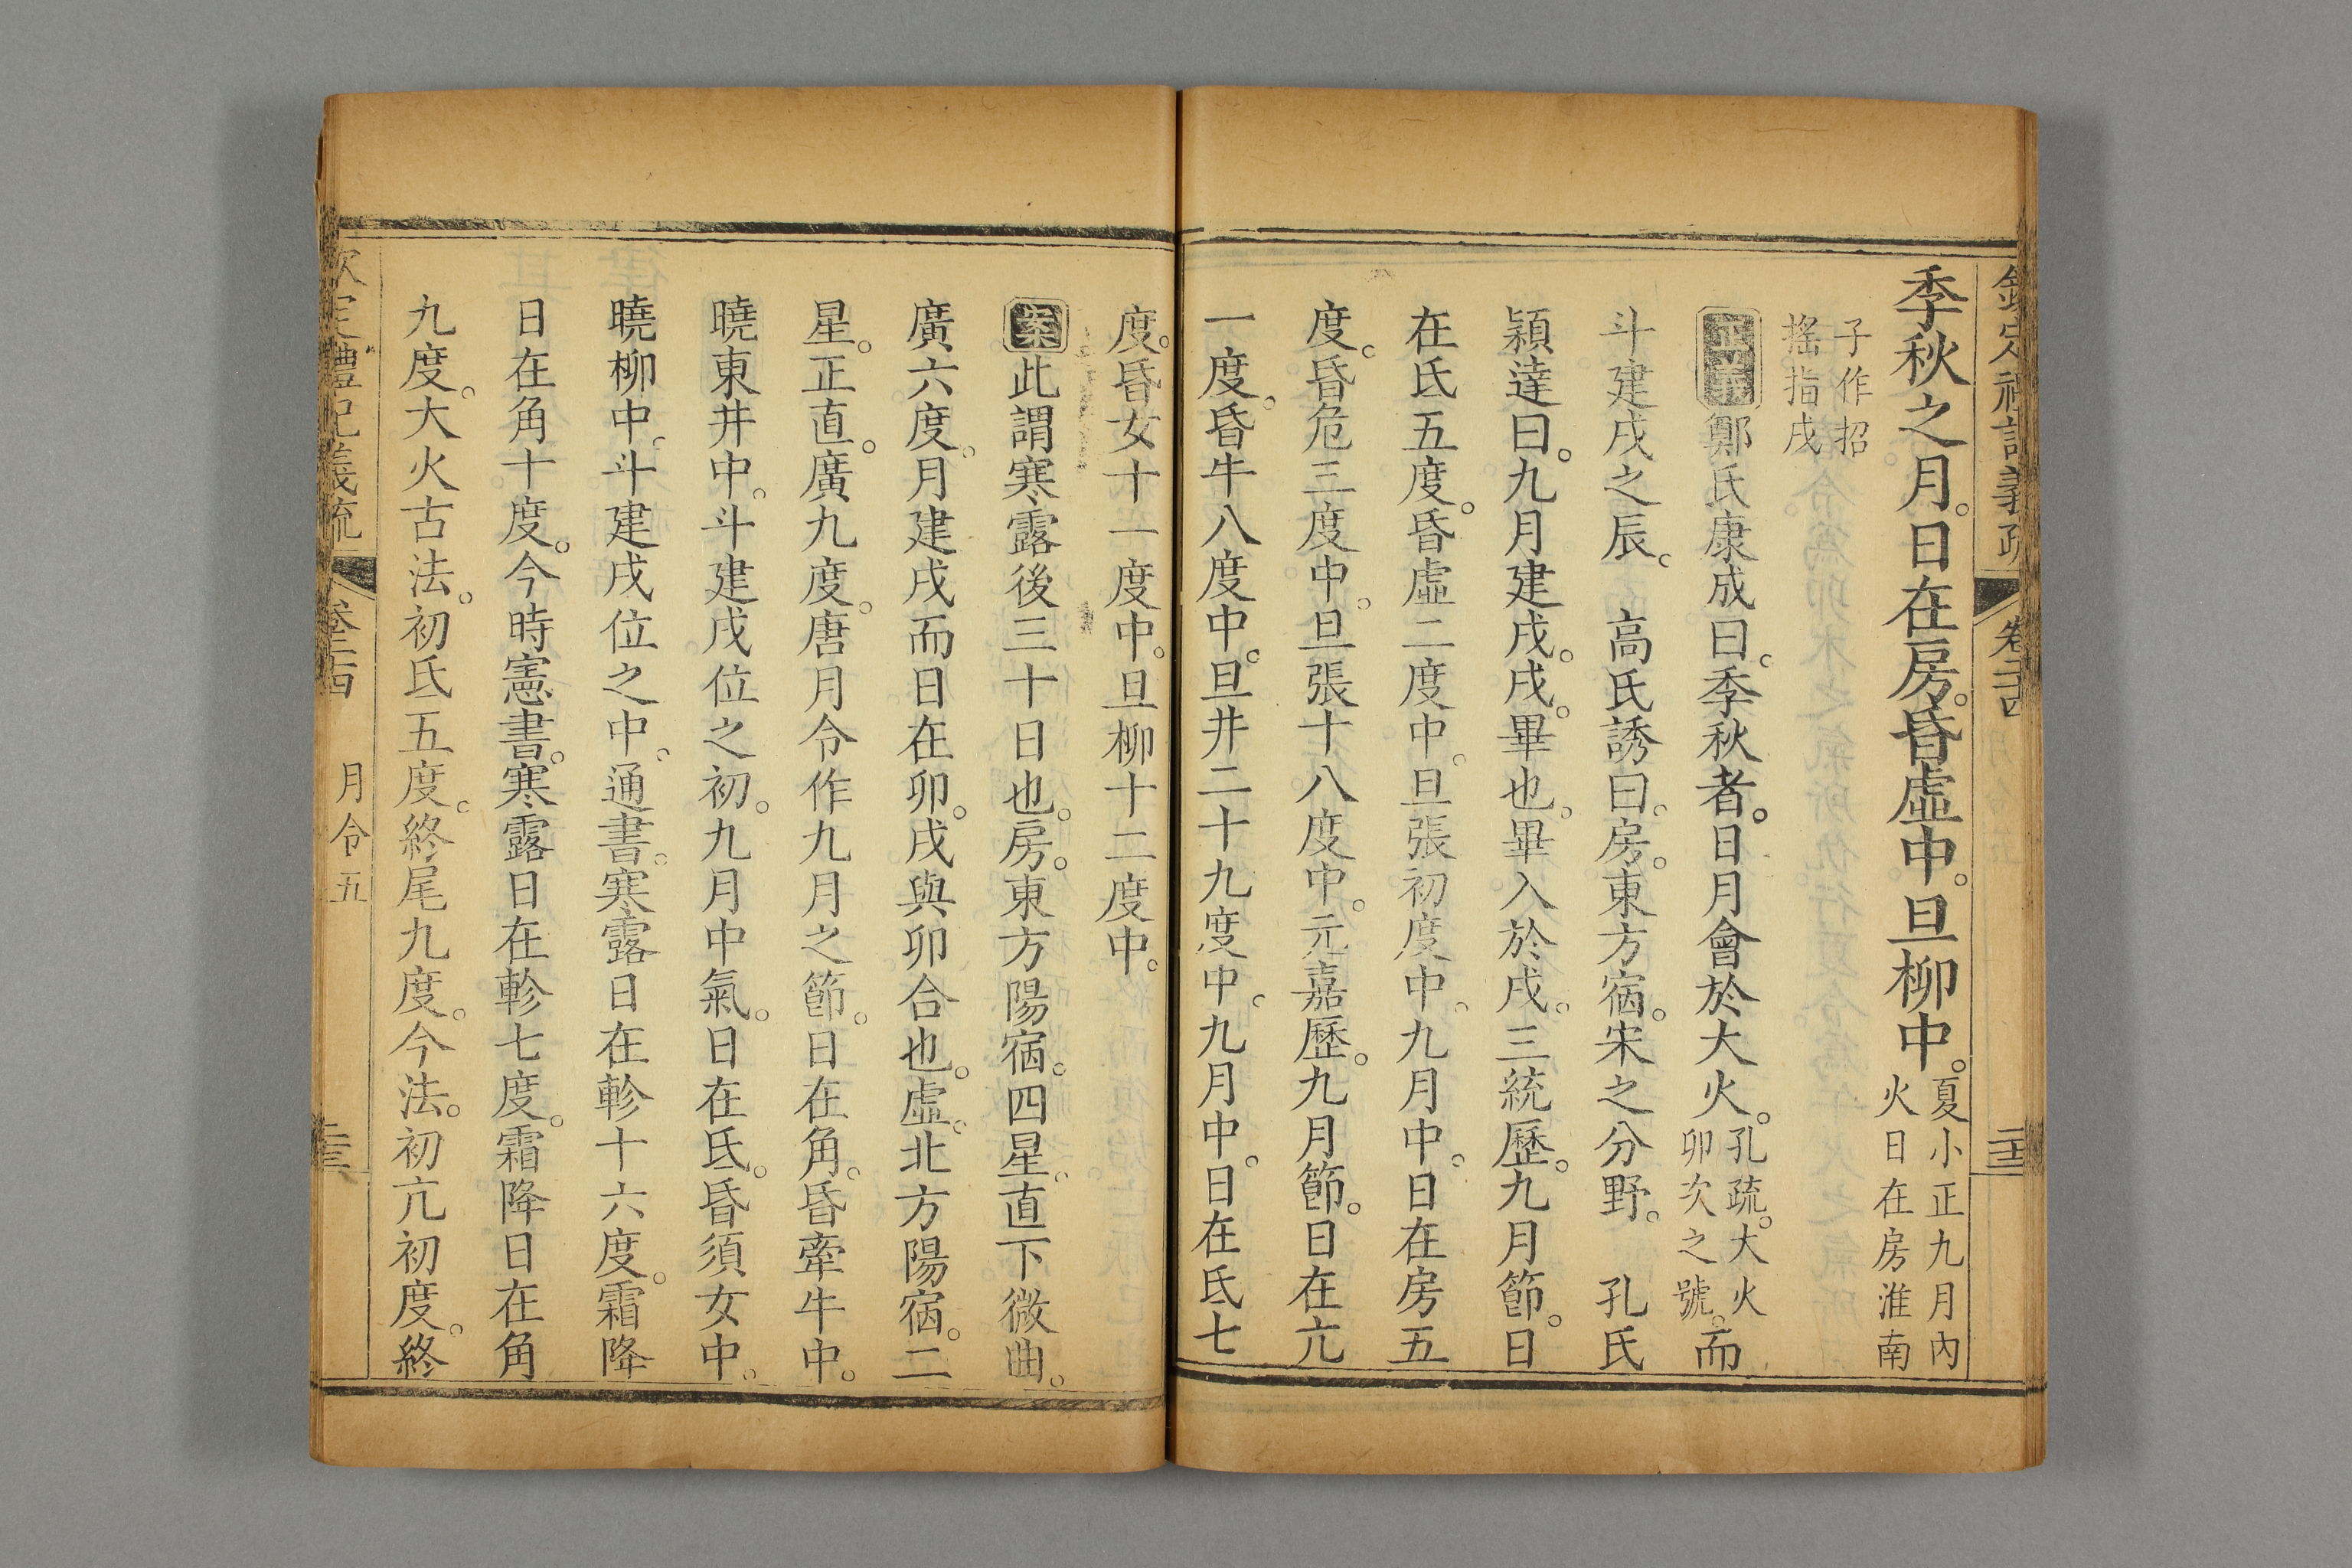 欽定禮記義疏 卷二十四
季秋之月。日在房。昏虛中。旦柳中。夏小正九月內
火日在房淮南
子作招
搖指戌
正義鄭氏康成曰。季秋者。日月會於大火。孔疏。大火
卯次之號。而
斗建戌之辰。 高氏誘曰。房。東方宿。宋之分野。 孔氏
穎達曰。九月建戌。戌。畢也。畢入於戌。三統歷。九月節。日
在氐五度。昏虛二度中。旦張初度中。九月中。日在房五
度。昏危三度中。旦張十八度中。元嘉歷。九月節。日在亢
一度。昏牛八度中。旦井二十九度中。九月中。日在氐七
度。昏女十一度中。旦柳十二度中。
案此謂寒露後三十日也。房。東方陽宿。四星。直下微曲。
廣六度。月建戌而日在卯。戌與卯合也。虛。北方陽宿。二
星。正直。廣九度。唐月令作九月之節。日在角。昏牽牛中。
曉東井中。斗建戌位之初。九月中氣。日在氐。昏須女中。
曉柳中。斗建戌位之中。通書。寒露日在軫十六度。霜降
日在角十度。今時憲書。寒露日在軫七度。霜降日在角
九度。大火古法。初氐五度。終尾九度。今法。初亢初度。終
欽定禮記義疏 卷二十四 月令五